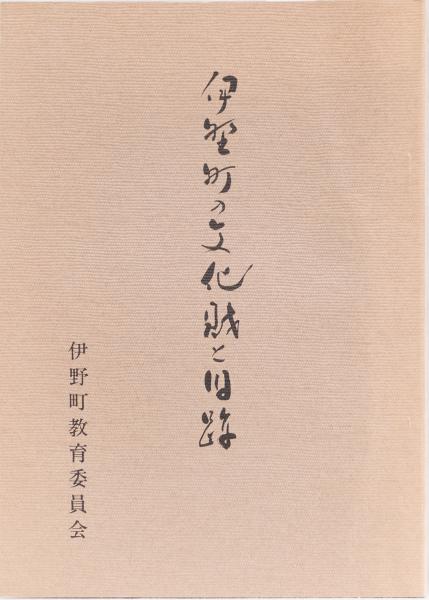 伊野町の文化財と旧跡
伊野町教育委員会